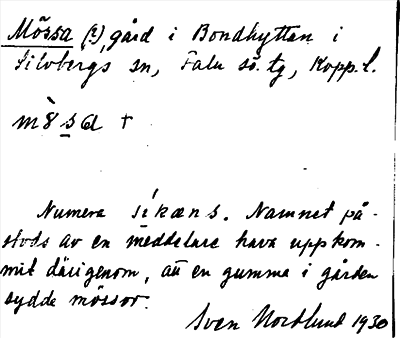 Mössa (?), gård i Bondhyttan i
Silvbergs sn, Falu sö. tg, Kopp. l.
m8̀sa †
Numera síkæns. Namnet på-
stods av en meddelare hava uppkom-
mit därigenom, att en gumma i gården
sydde mössor.
Sven Nordlund 1930